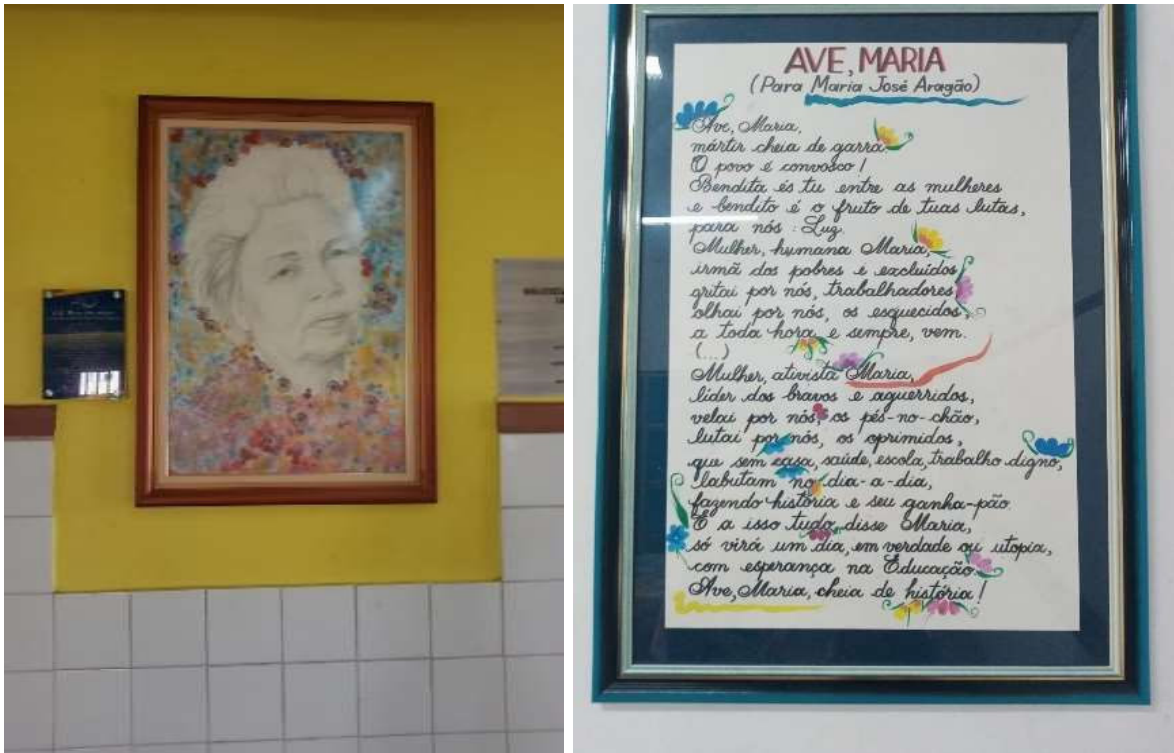 AVE, MARIA
(Para Maria José Aragão)
Ave, Maria,
mártir cheia de garra.
O povo é convosco!
Bendita és tu entre as mulheres
e bendito é o fruto de tuas lutas,
para nós: Luz.
Mulher, humana Maria,
irmã dos pobres e excluídos,
gritai por nós, trabalhadores,
olhai por nós, os esquecidos,
a toda hora, e sempre, vem.
(...)
Mulher, ativista Maria,
líder dos bravos e aguerridos,
velai por nós, os pés-no-chão,
lutai por nós, os oprimidos,
que sem casa, saúde, escola, trabalho digno,
labutam no dia-a-dia,
fazendo história e seu ganha-pão.
E a isso tudo, disse Maria,
só virá um dia, em verdade ou utopia,
com esperança na Educação.
Ave, Maria, cheia de história!